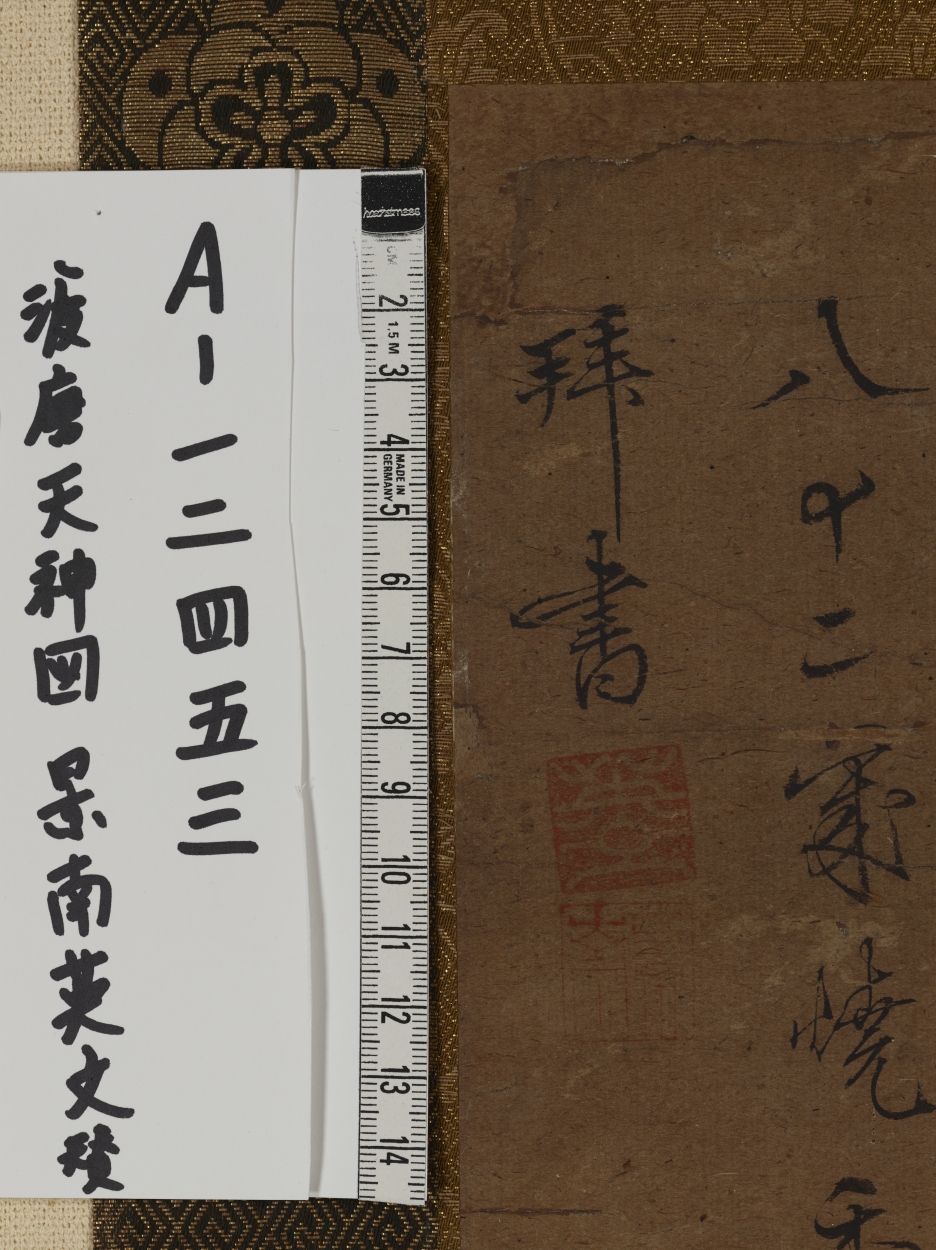 八十二歳燒香
拜書
hoechstmass
CM 2 3 4 5 6 7 8 9 10 11 12 13 14
1,5 M
MADE IN
GERMANY
A-一二四五三
渡唐天神図 景南英文